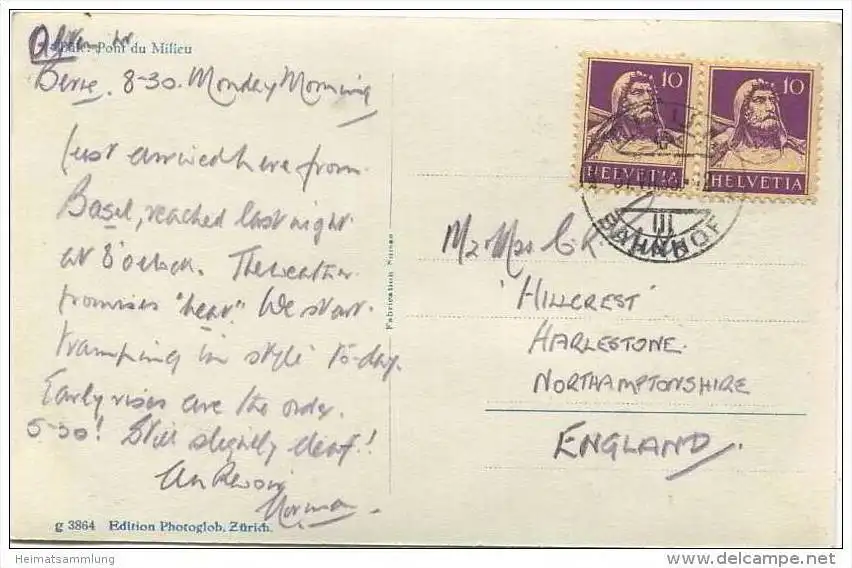 Bâle: Pont du Milieu
Berne. 8-30. Monday Morning
Just arrived here from
Basel, reached last night
at 8 o'clock. The weather
promises "heat". We start
tramping in style to-day.
Early rises are the order.
5-30! Still slightly deaf!!
Au Revoir
Norman.
g 3864 Edition Photoglob, Zürich.
Fabrication Suisse
10
HELVETIA
10
HELVETIA
III
BAHNHOF
Mr & Mrs C. R.
'HILLCREST'
HARLESTONE.
NORTHAMPTONSHIRE
ENGLAND.
Heimatsammlung
www.delcampe.net